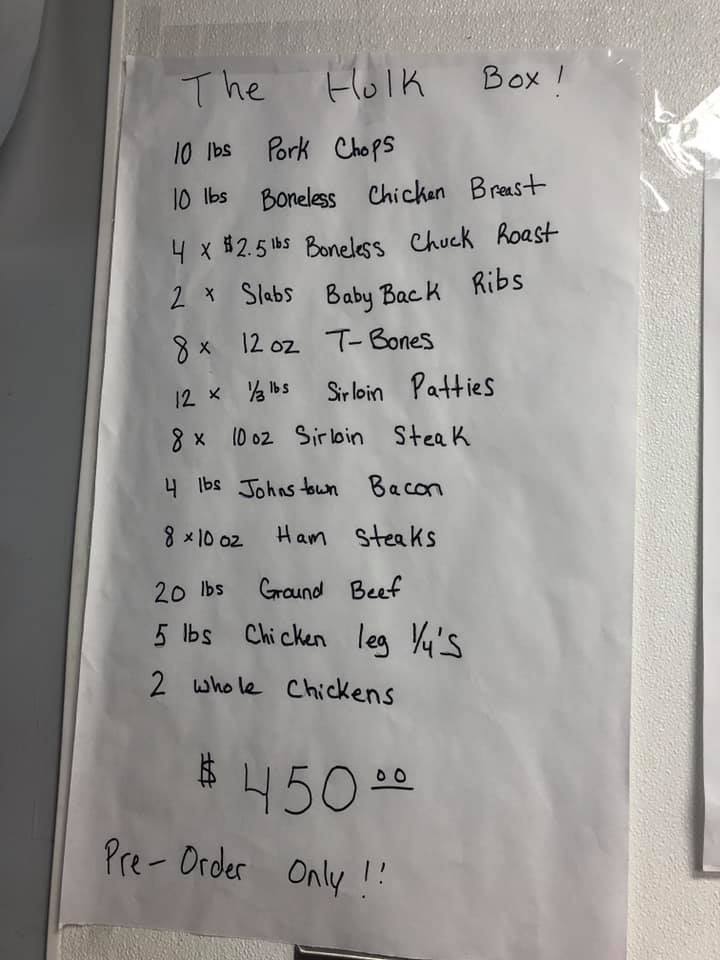 The Hulk Box!
10 lbs Pork Chops
10 lbs Boneless Chicken Breast
4 x $2.5 lbs Boneless Chuck Roast
2 x Slabs Baby Back Ribs
8 x 12 oz T-Bones
12 x 1/3 lbs Sirloin Patties
8 x 10 oz Sirloin Steak
4 lbs Johnstown Bacon
8 x 10 oz Ham Steaks
20 lbs Ground Beef
5 lbs Chicken leg 1/4's
2 whole Chickens
$ 450 00
Pre-Order Only!!